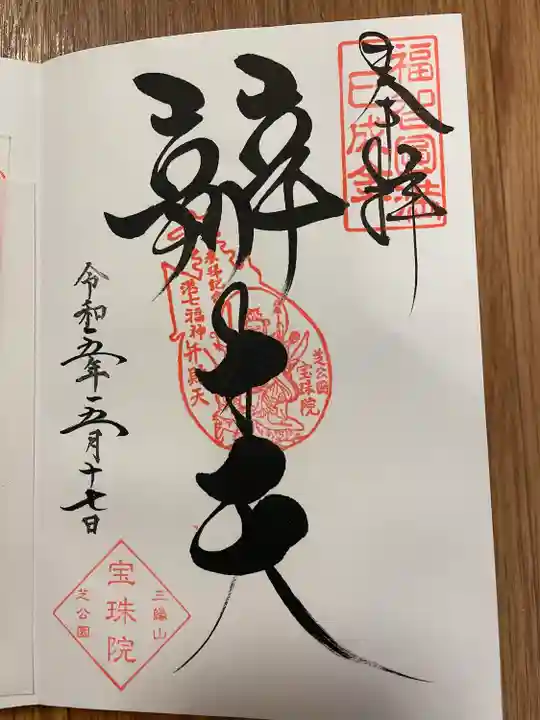 奉拝
福智圓満
巳成金
辯才天
参拝記念
港七福神弁財天
芝公園
宝珠院
令和五年五月十七日
三縁山
宝珠院
芝公園